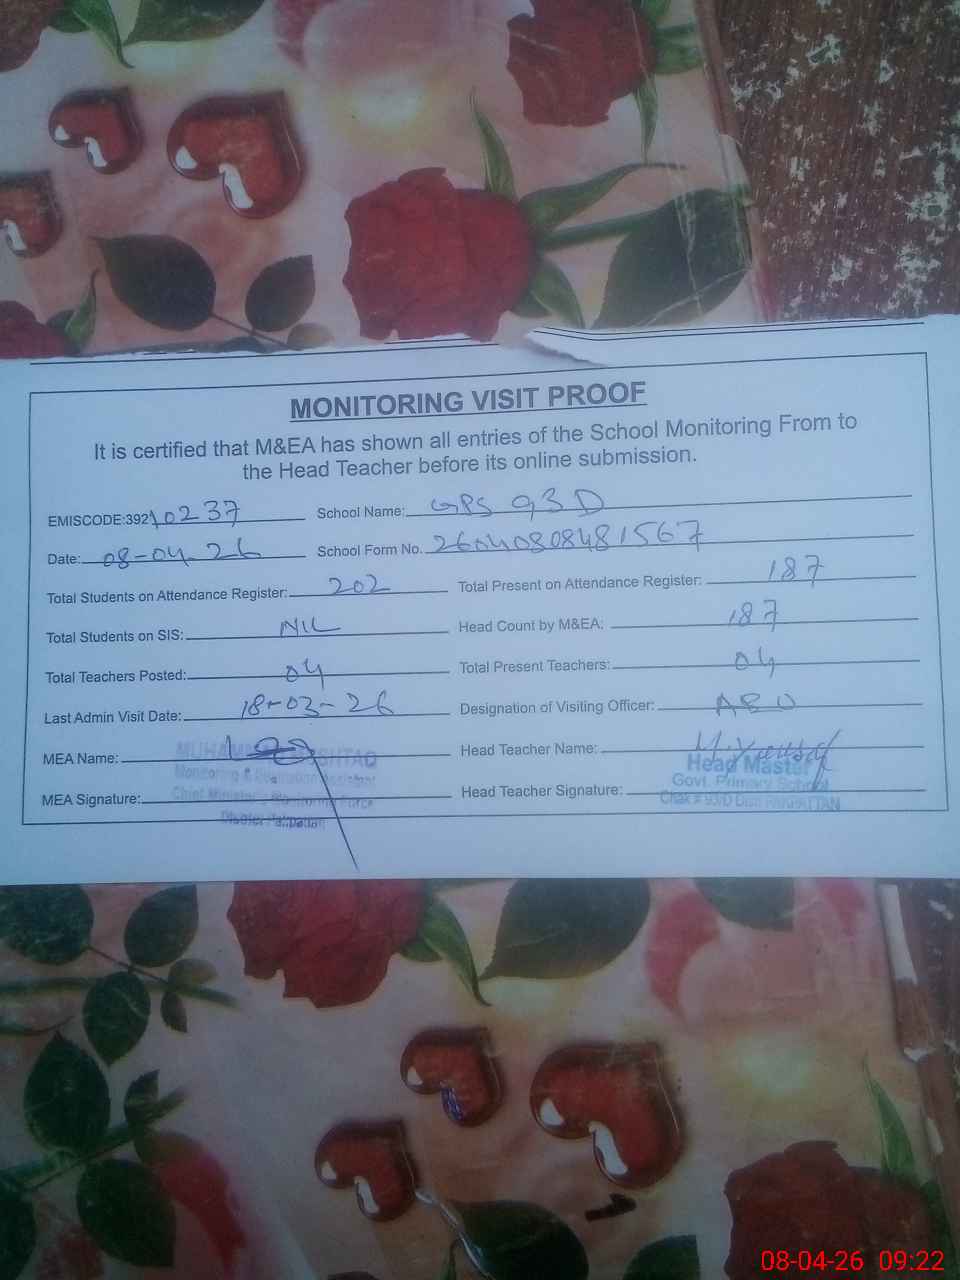 MONITORING VISIT PROOF
It is certified that M&EA has shown all entries of the School Monitoring From to
the Head Teacher before its online submission.
EMISCODE:39210237 School Name: GPS 93D
Date: 08-04-26 School Form No. 26040808481567
Total Students on Attendance Register: 202 Total Present on Attendance Register: 187
Total Students on SIS: NIL Head Count by M&EA: 187
Total Teachers Posted: 04 Total Present Teachers: 04
Last Admin Visit Date: 18-03-26 Designation of Visiting Officer: AEO
MEA Name: MUHAMMAD MUSHTAQ Head Teacher Name: M. Yousaf
Monitoring & Evaluation Assistant Head Master
Chief Minister's Monitoring Force Govt. Primary School
MEA Signature: Head Teacher Signature:
District Pakpattan Chak # 93/D Distt PAKPATTAN
08-04-26 09:22